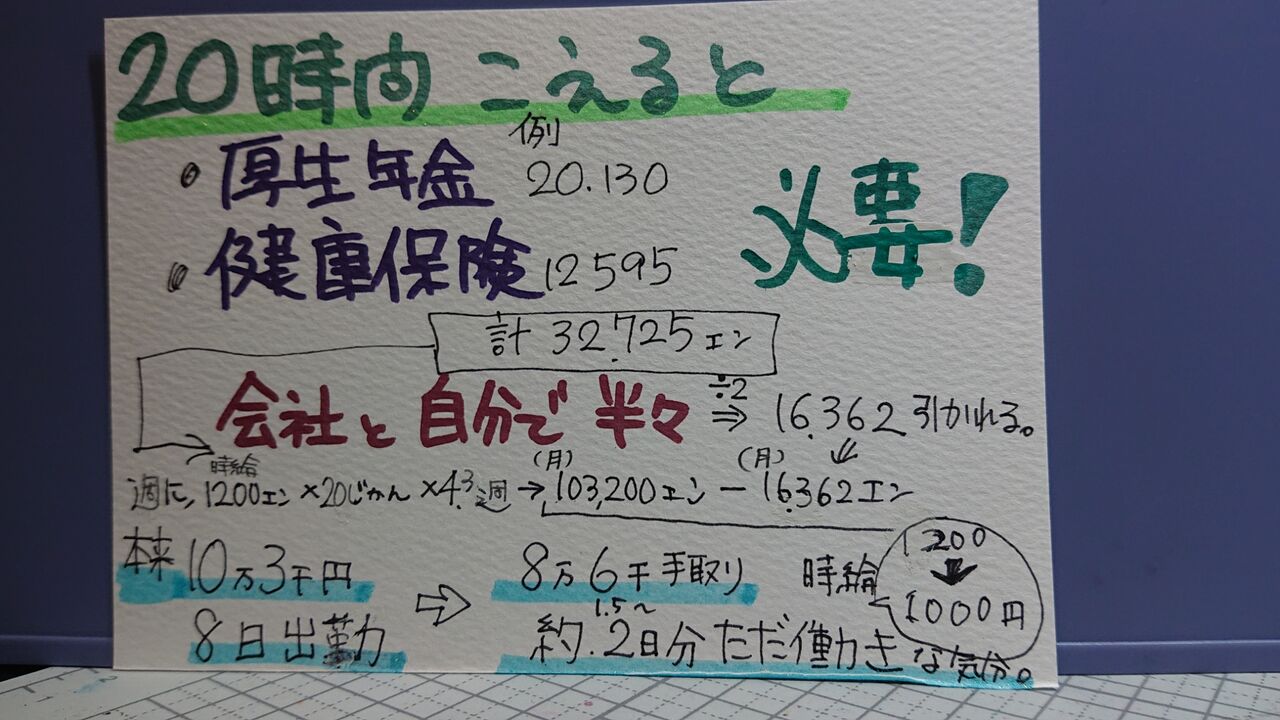 20時間 こえると
例
・厚生年金 20.130
必要!
・健康保険 12595
計 32.725エン
会社と自分で半々 ÷2 ⇒ 16.362引かれる。
時給 (月) (月)
週に, 1200エン×20じかん×4.3週→103,200エン－16.362エン
本来10万3千円 ⇨ 8万6千手取り 時給 1200
1.5〜 1000円
8日出勤 約.2日分ただ働きな気分。